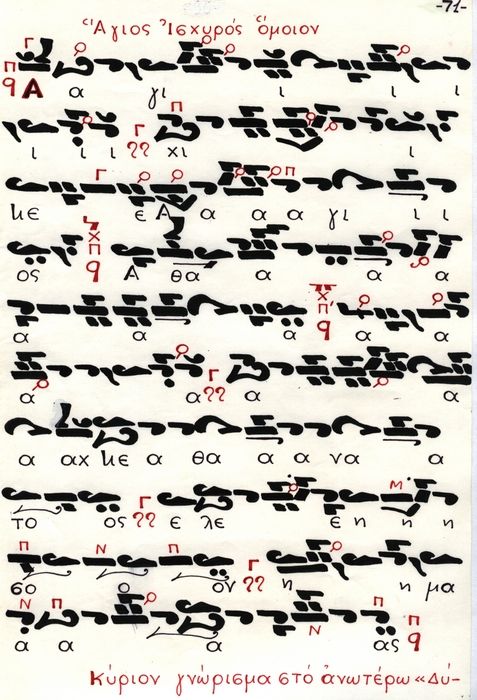 -71-
Ἅγιος Ἰσχυρός ὅμοιον
Α α γι ι ι ι
ι ι ι χι ι
κε ε Α α α α γι ι ι
ος Α θα α α α
α α α α α
α α α α
α αχ κε α θα α α να α
το ος ε λε ε η η η
σο ο ον η η μα
α α α ας
Κύριον γνώρισμα στό ἀνωτέρω «Δύ-